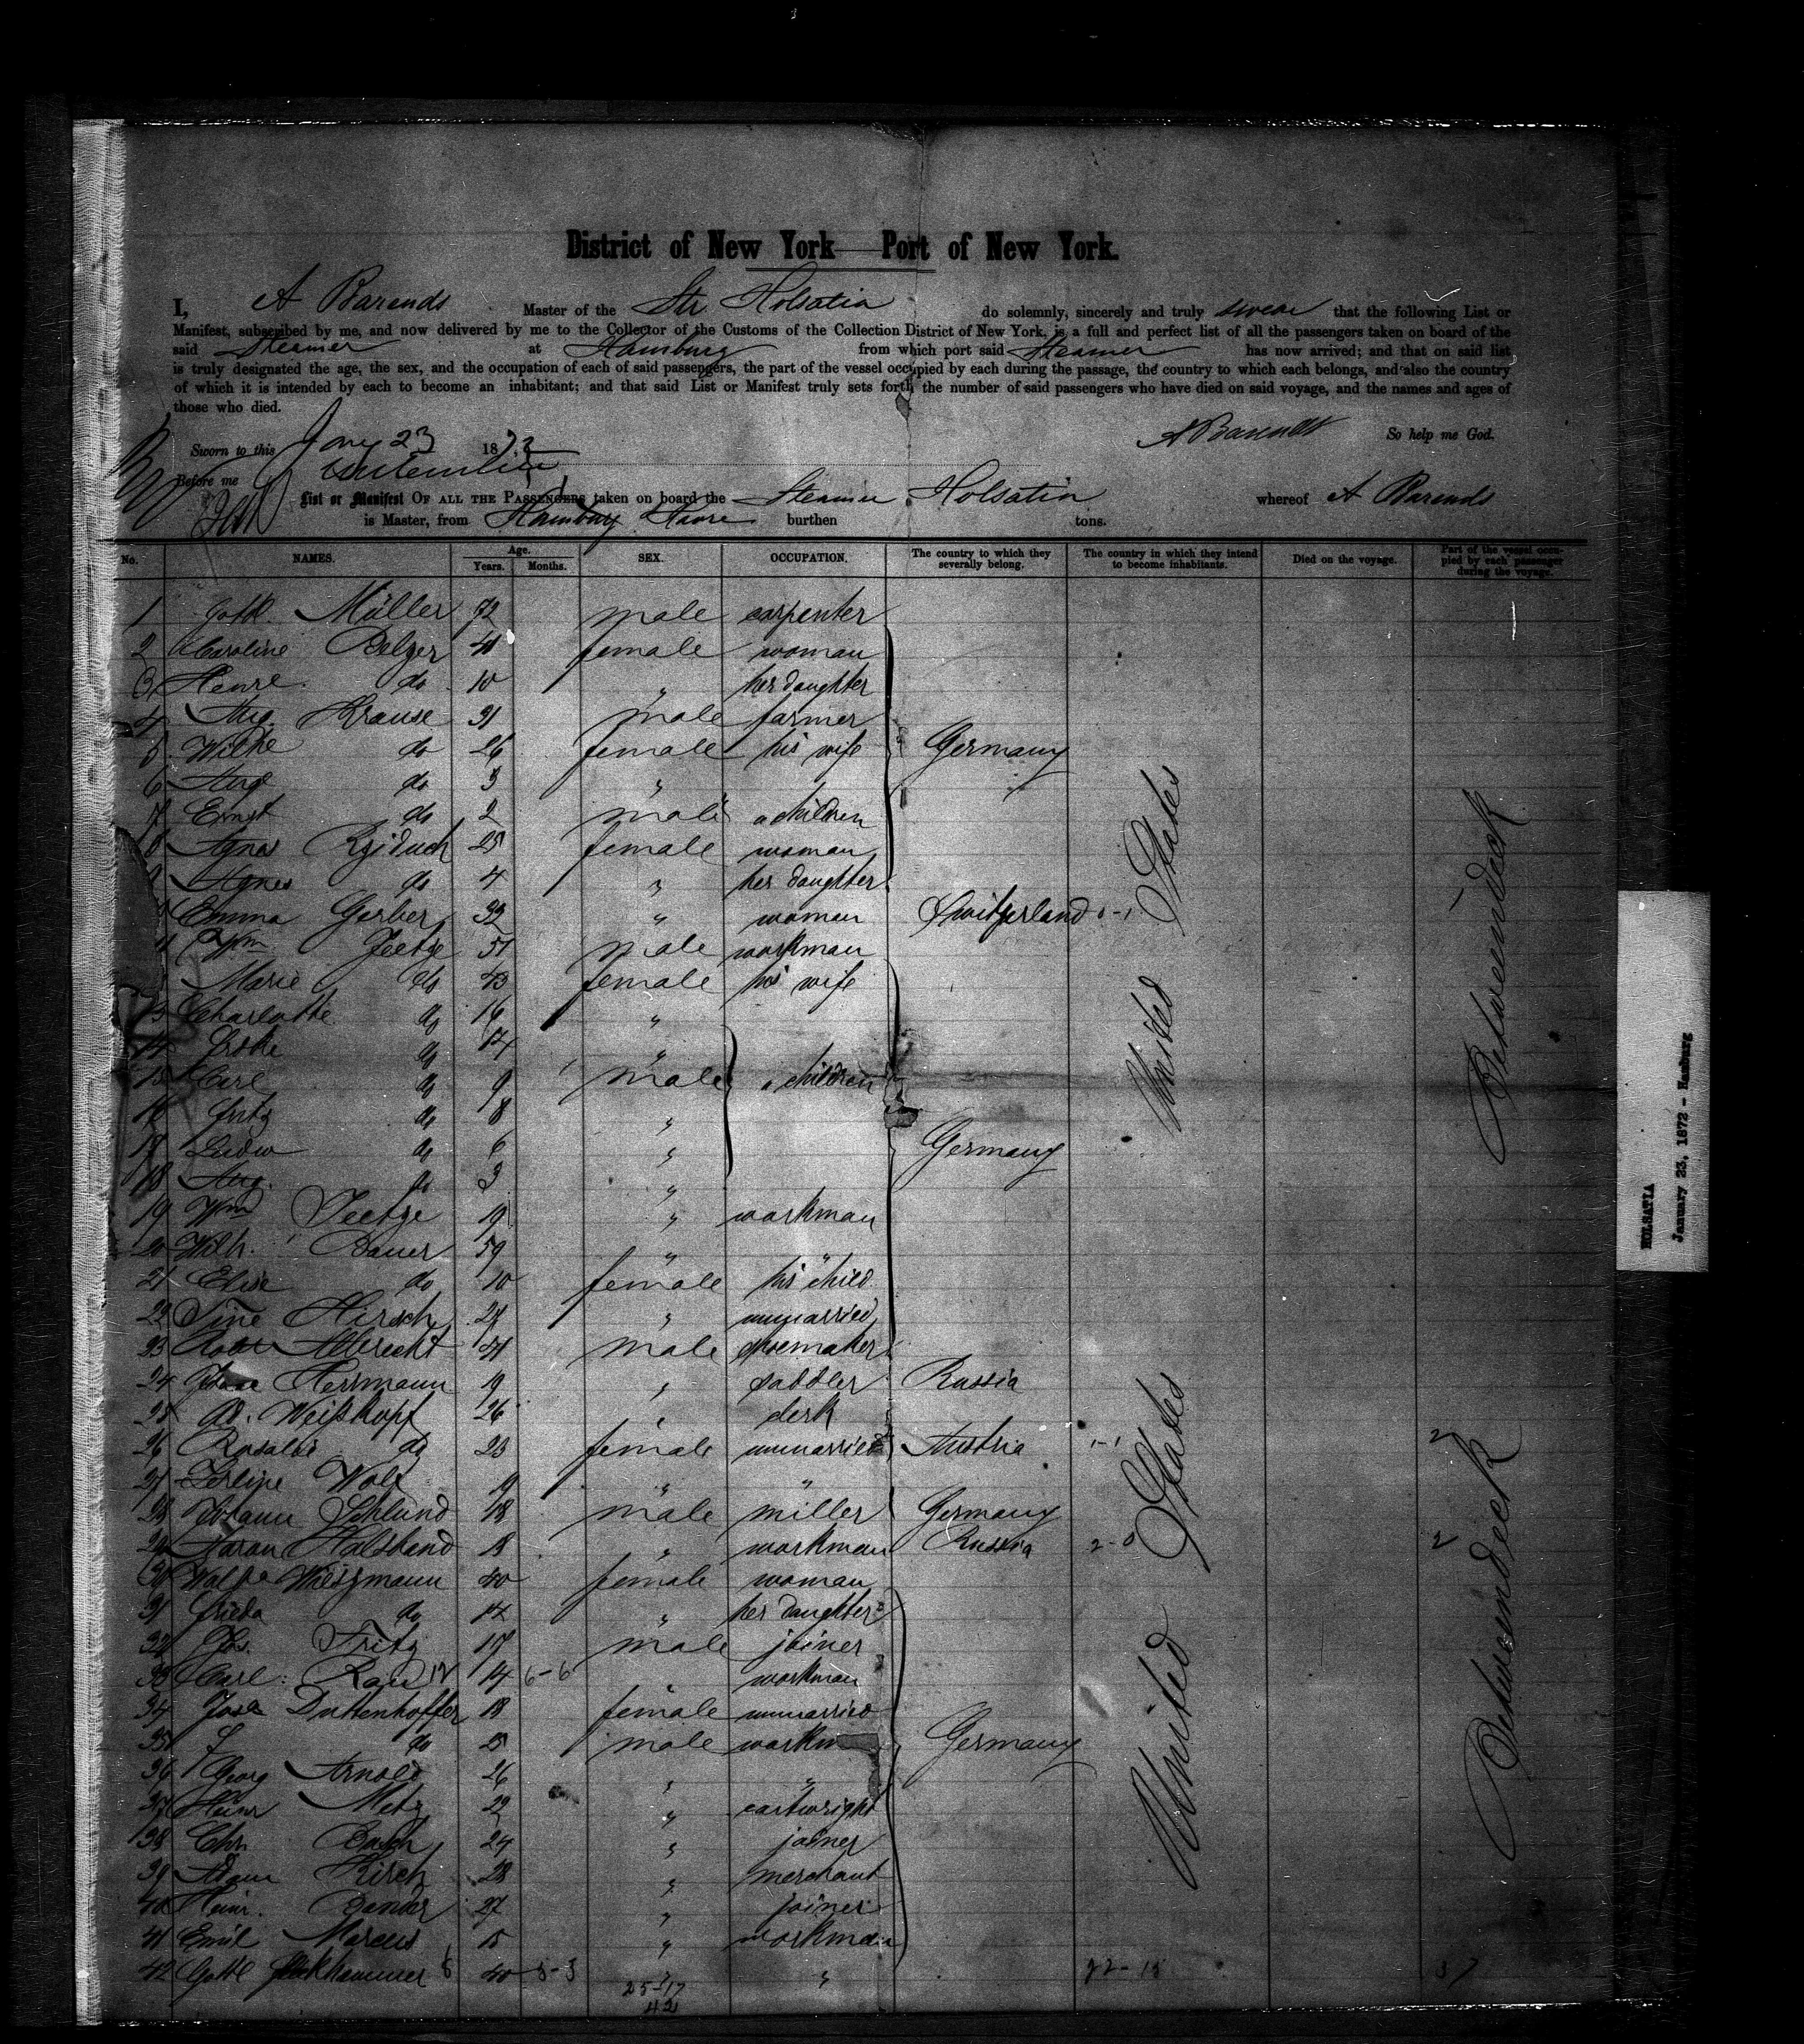 District of New York — Port of New York.
I, A Barends Master of the Str Holsatia do solemnly, sincerely and truly swear that the following List or
Manifest, subscribed by me, and now delivered by me to the Collector of the Customs of the Collection District of New York, is a full and perfect list of all the passengers taken on board of the
said Steamer at Hamburg from which port said Steamer has now arrived; and that on said list
is truly designated the age, the sex, and the occupation of each of said passengers, the part of the vessel occupied by each during the passage, the country to which each belongs, and also the country
of which it is intended by each to become an inhabitant; and that said List or Manifest truly sets forth the number of said passengers who have died on said voyage, and the names and ages of
those who died.
Sworn to this Jany 23 187 A Barends So help me God.
Before me
List or Manifest OF ALL THE PASSENGERS taken on board the Steamer Holsatia whereof A Barends
is Master, from Hamburg Havre burthen tons.
No. NAMES. Age. Years. Months. SEX. OCCUPATION. The country to which they severally belong. The country in which they intend to become inhabitants. Died on the voyage. Part of the vessel occupied by each passenger during the voyage.
1 Gottl. Müller 72 male carpenter
2 Caroline Belzer 40 female woman
3 Henre. do 10 " her daughter
4 Aug. Krause 31 male farmer
5 Wilhe do 26 female his wife Germany
6 Auge do 3 "
7 Ernst do 2 male children
8 Agnes 25 female woman
9 Agnes do 4 " her daughter
Emma Gerber 32 " woman Switzerland 0-1
11 Wm Jeetze 51 male workman
Marie do 43 female his wife
13 Charlotte do 16 "
14 do 14 "
15 Carl do 9 male children
16 Fritz do 8 "
17 Ludw do 6 " Germany
18 Aug. do 3 "
19 Wm Jeetze 19 " workman
20 Wilh. Bauer 59 " "
21 Elise do 10 female his child
22 Tine Hirsch 24 " unmarried
23 Robt Albrecht 41 male shoemaker
24 Herrmann 19 " saddler Russia
25 Ad. Weißkopf 26 " clerk
26 Rosalie do 23 female unmarried Austria 1-1 2
27 Wolf 19 " "
28 Johann Schlund 18 male miller Germany
29 Aaron Halsband 18 " workman Russia 2-0 2
30 Weitzmann 40 female woman
31 Frieda do 14 " her daughter
32 Jos. Fritz 17 male joiner
33 Carl Rau 12 14 6-6 " workman
34 Josa Duttenhoffer 18 female unmarried
35 J do 25 male workm Germany
36 Georg Arnold 26 " "
37 Heinr Metz 22 " cartwright
38 Chr. Busch 24 " joiner
39 Adam Kirsch 28 " merchant
40 Heinr. Bender 27 " joiner
41 Emil Marcus 15 " workman
42 Gottl 6 40 3-3 " " 22-15 37
25-17
42
United States
Betweendeck
United States
Betweendeck
HOLSATIA
January 23, 1872 - Hamburg